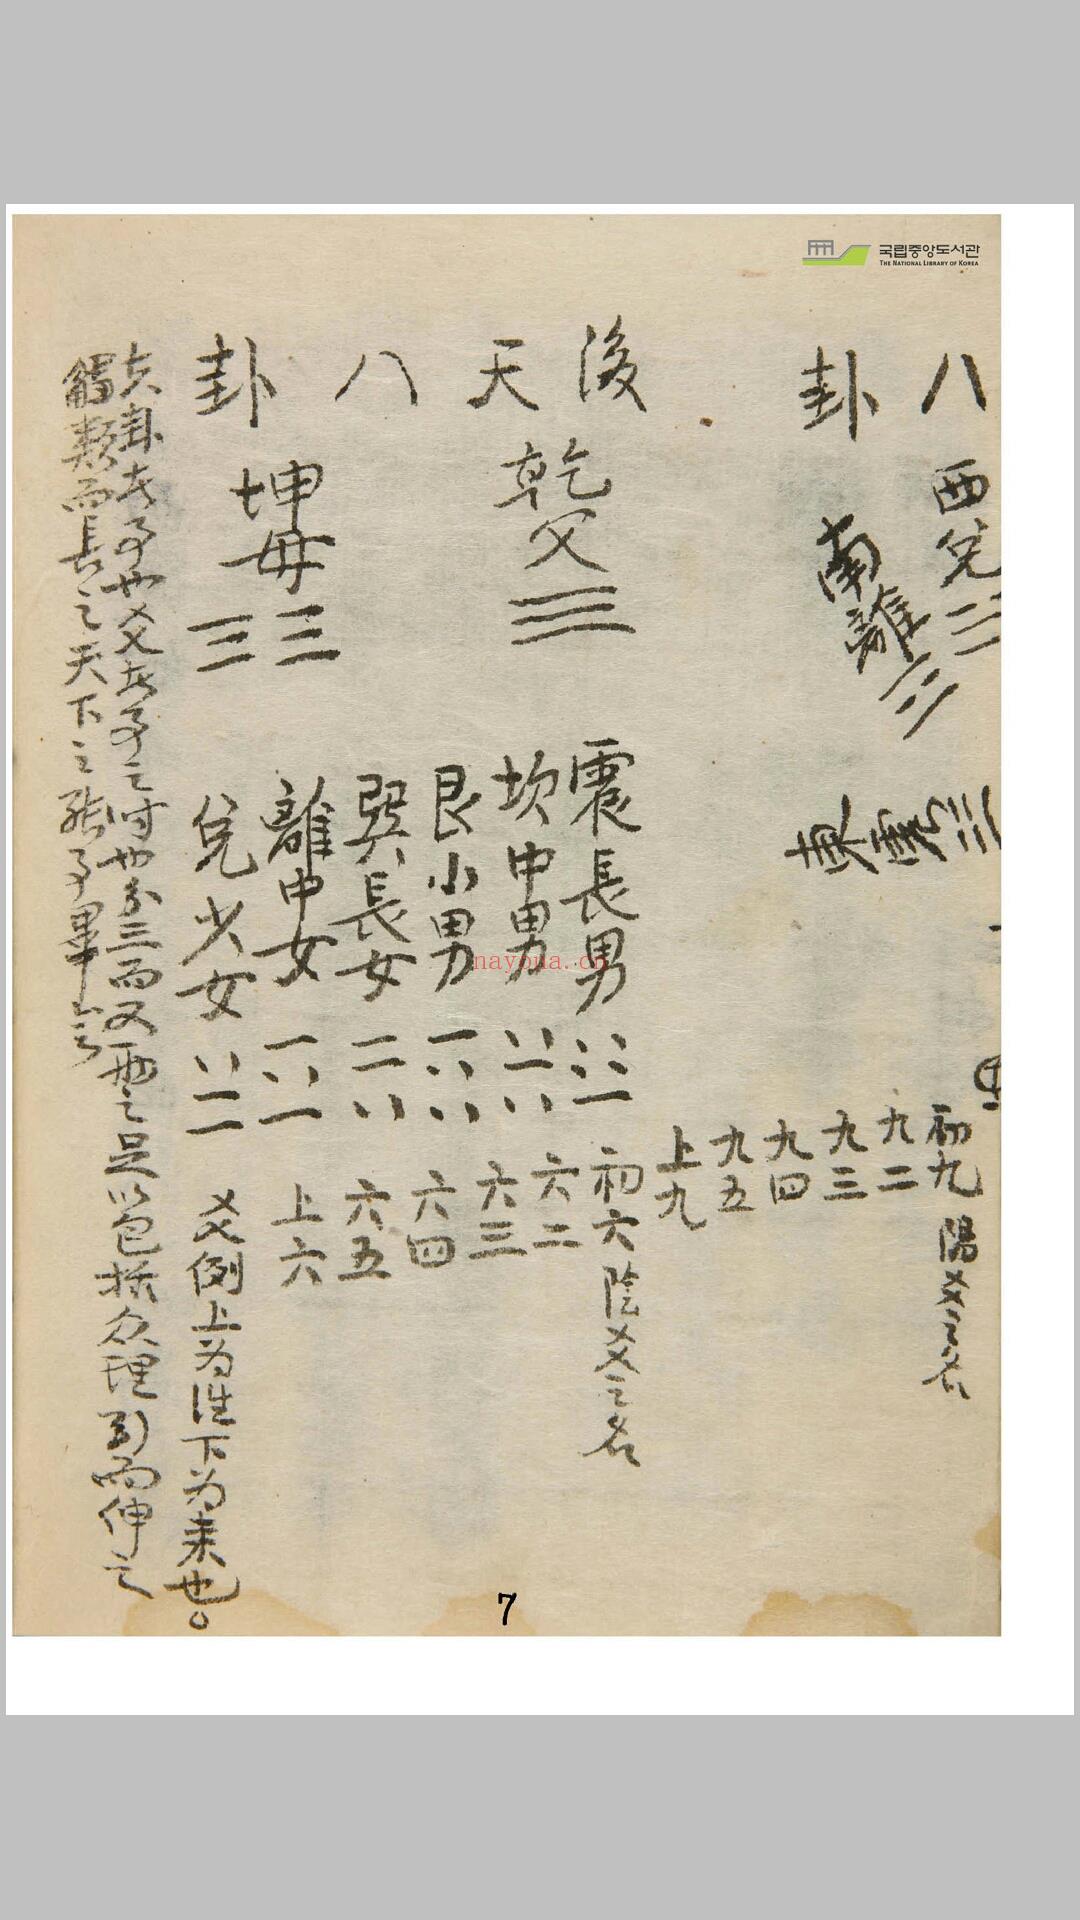 국립중앙도서관
THE NATIONAL LIBRARY OF KOREA
八
卦
西兌☱
南離☲
東震☳
初九 陽爻之名
九二
九三
九四
九五
上九
後天八卦
乾父☰
坤母☷
震長男☳
坎中男☵
艮小男☶
巽長女☴
離中女☲
兌少女☱
初六 陰爻之名
六二
六三
六四
六五
上六
爻例上为往下为来也。
夫卦者事也爻者事之时也分三而又兩之足以包括众理引而伸之
觸類而長之天下之能事畢矣
nayoua.cn
7